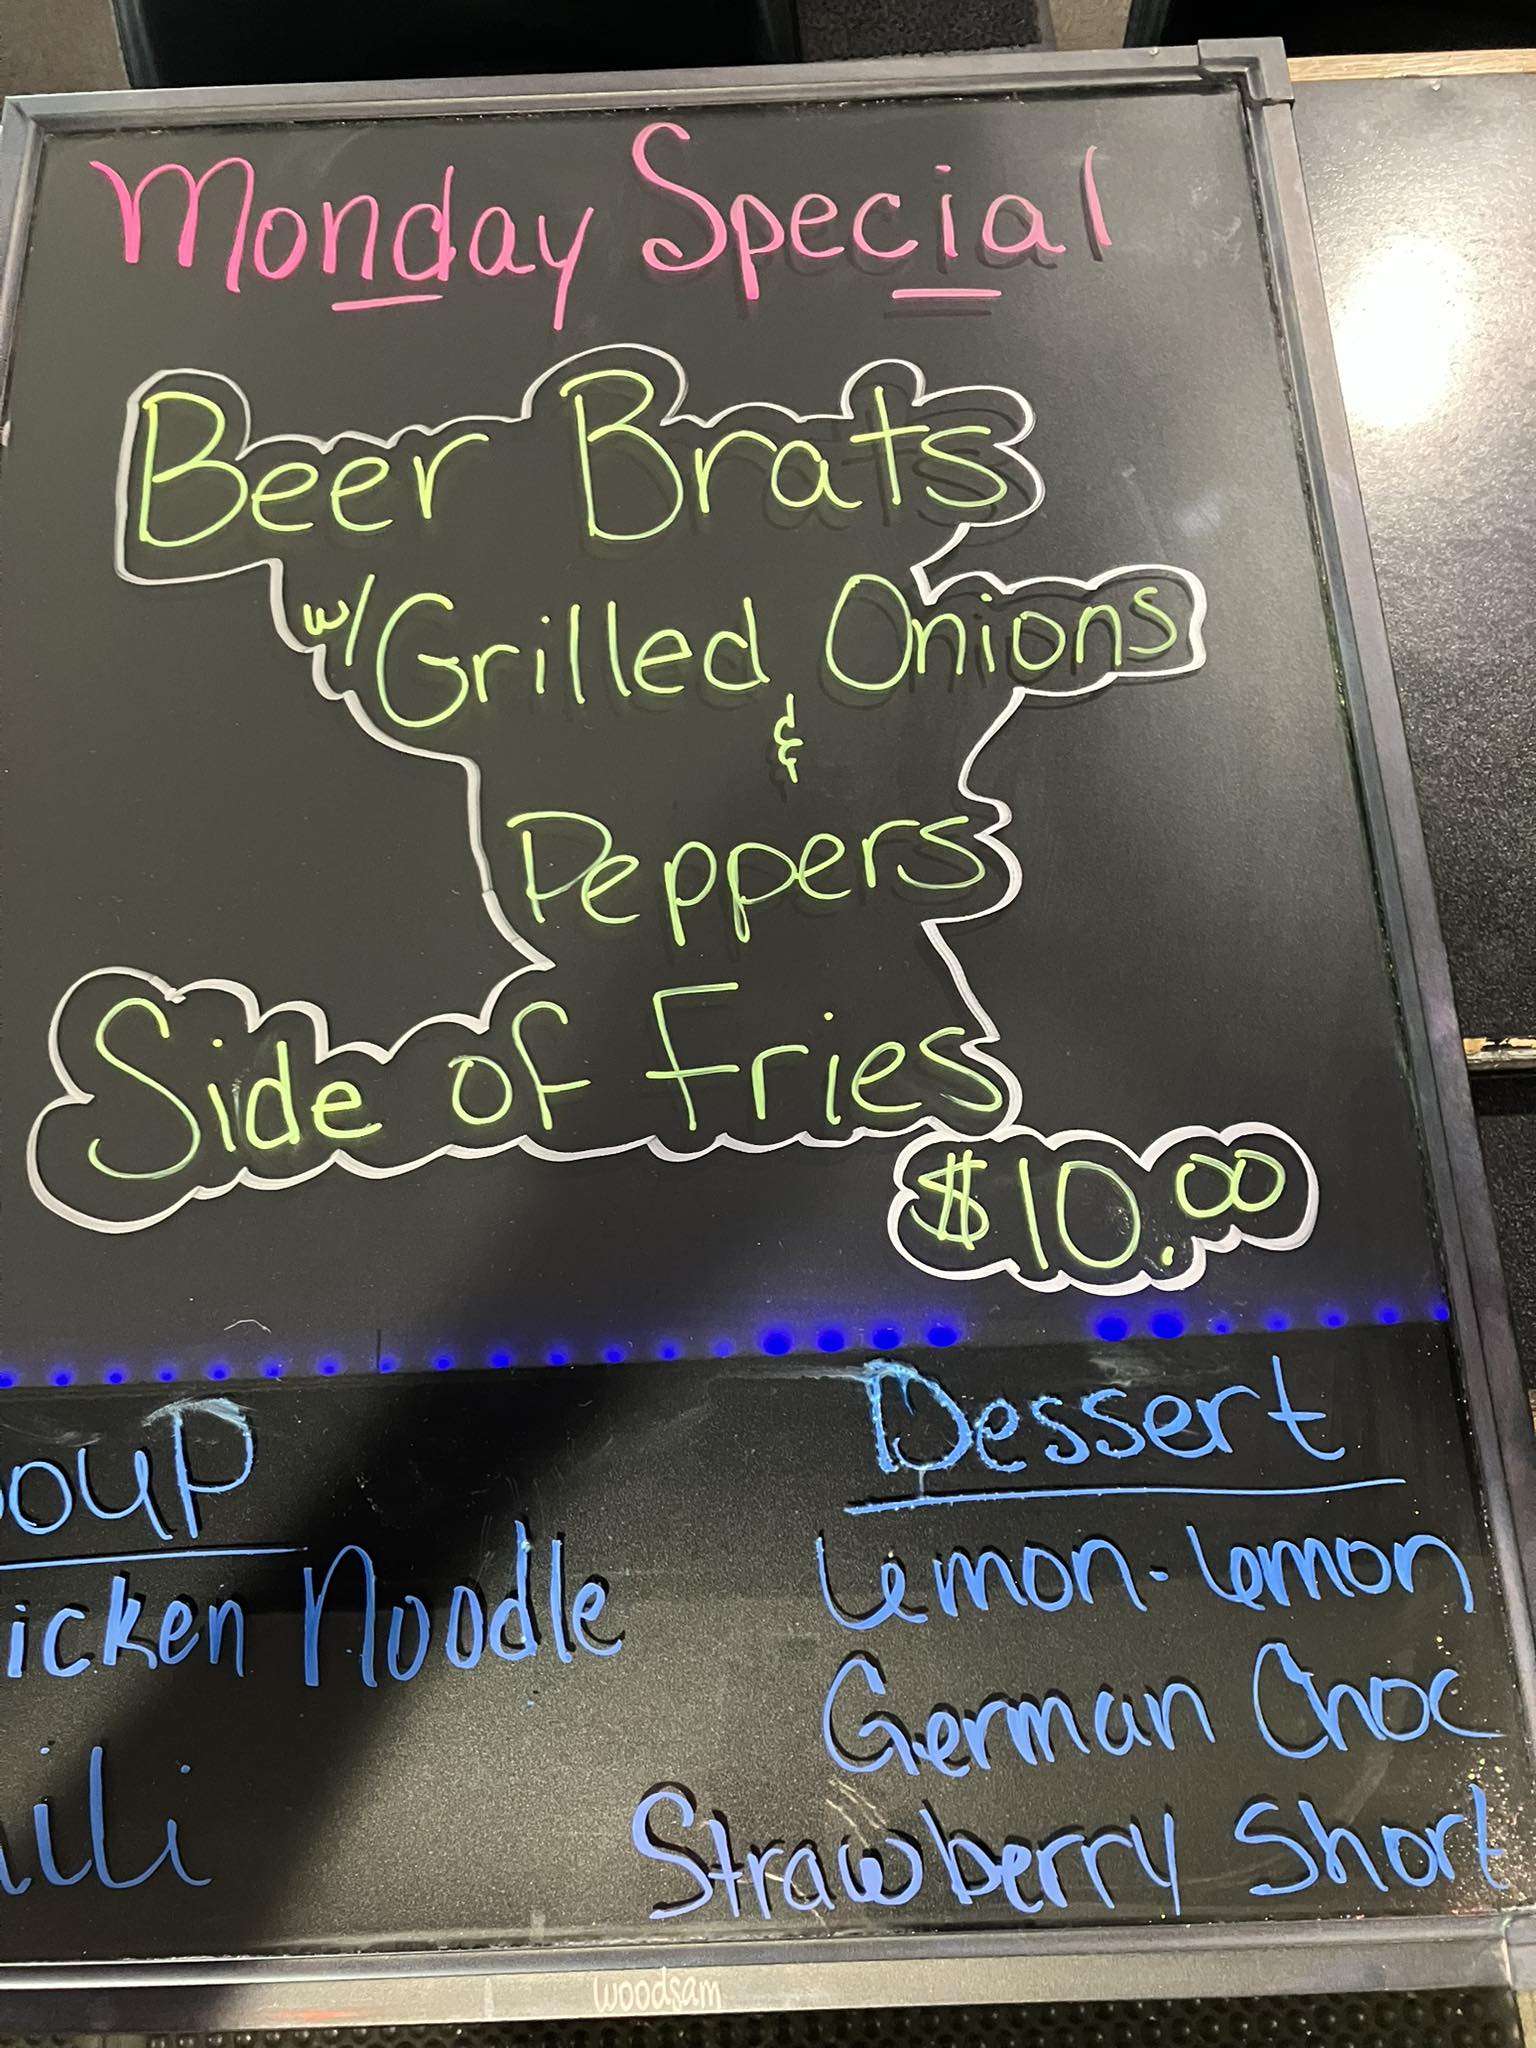 Monday Special
Beer Brats
w/ Grilled Onions
&
Peppers
Side of Fries
$10.00
oup
icken Noodle
ili
Dessert
Lemon-Lemon
German Choc
Strawberry Short
woodsam